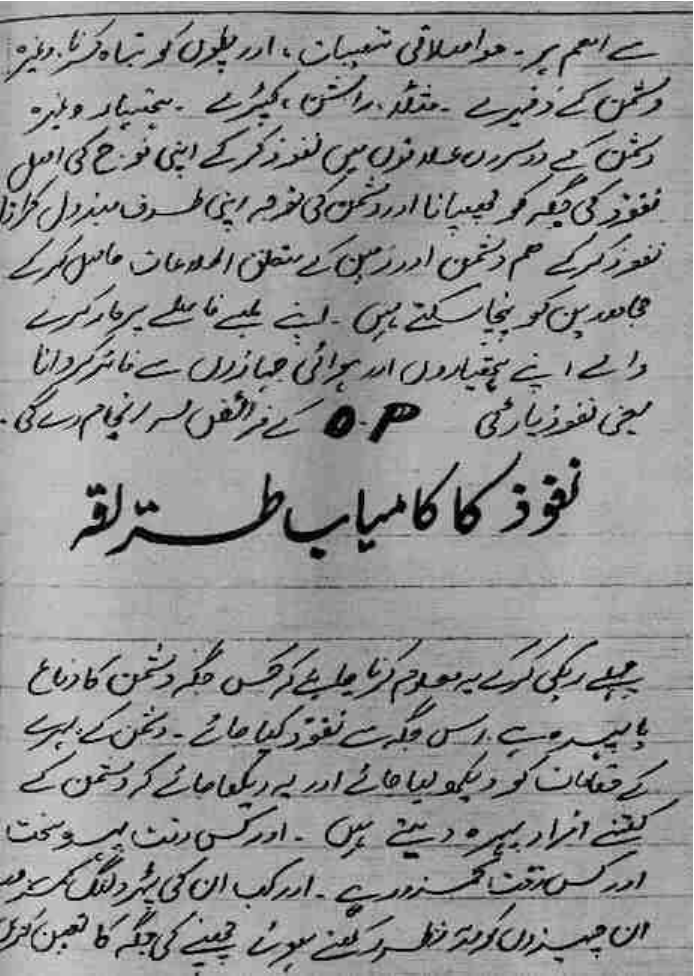 سے اہم پر۔ مواصلاتی تنصیبات، اور پلوں کو تباہ کرنا وغیرہ
دشمن کے ذخیرے۔ مثلاً، راشن، کپڑے۔ ہتھیار وغیرہ
دشمن کے دوسروں علاقوں میں نفوذ کر کے اپنی فوج کی اصل
نفوذ کی جگہ کو چھپانا اور دشمن کی توجہ اپنی طرف مبذول کرانا
نفوذ کر کے ہم دشمن اور زمین کے متعلق اطلاعات حاصل کر کے
مجاھدین کو پنچا سکتے ہیں۔ اپنے لمبے فاصلے پر مار کرنے
والے اپنے ہتھیاروں اور ہوائی جہازوں سے فائر کروانا
یعنی نفوذ پارٹی O.P کے فرائض سر انجام دے گی۔
نفوذ کا کامیاب طریقہ
پہلے ریکی کر کے یہ معلوم کرنا چاہئے کہ کس جگہ دشمن کا دفاع
یا پہرہ ہے، اس جگہ سے نفوذ کیا جائے۔ دشمن کے پہرے
کے مقامات کو دیکھ لیا جائے اور یہ دیکھا جائے کہ دشمن کے
کتنے افراد پہرہ دیتے ہیں۔ اور کس وقت پہرہ سخت
اور کس وقت کمزور ہے۔ اور کب ان کی پٹرولنگ
ان چیزوں کو مدِ نظر رکھتے ہوئے چھپنے کی جگہ کا تعین